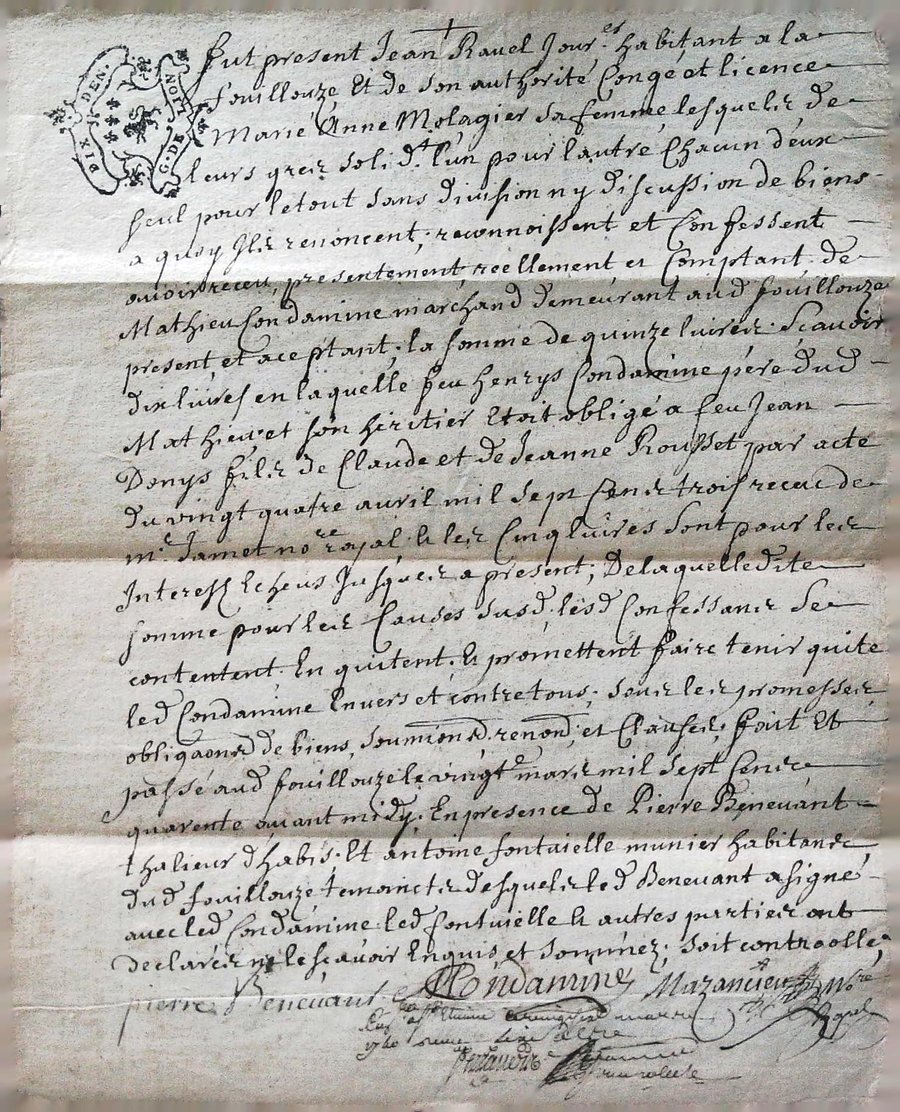 DIX DEN.
G. DE LION
fut present Jean Ravel Jour.er habitant a la
fouillouze Et de son authorité Congé et licence
Marie Anne Molagier sa femme lesquels de
leurs grez solid.t l'un pour l'autre Chacun deux
seul pour le tout sans division ny discussion de biens
a quoy Ils renoncent, reconnoissent et Confessent
avoir receu, presentement, reellement et Comptant de
Mathieu Condamine marchand demeurant aud fouillouze
present, et aceptant, la somme de quinze livres Scavoir
dix livres en laquelle feu henrys Condamine pere dud
Mathieu et son heritier Etoit obligé a feu Jean
Denys fils de Claude et de Jeanne Rousset par acte
du vingt quatre avril mil sept Cens trois receu de
m.r Jamet no.re royal, & les Cinq livres sont pour les
Interess Echeus Jusques a present, De laquelle dite
somme pour les Causes susd, lesd Confessans Se
contentent. En quitent. & promettent faire tenir quite
led Condamine Envers et contre tous, sous les promesses
obligaons de biens, soumions renond, et Clauses, fait Et
passé aud fouillouze le vingt.e mars mil sept Cens
quarente avant midy, En presence de Pierre Benevant
thalieur d'habis. Et antoine fontvielle munier habitans
dud fouillouze temoincts desquels led Benevant a signé
avec led Condamine led fontvielle & autres parties ont
declarés ne le scavoir Enquis et sommez, soit controollé,
pierre Benevant Condamine Mazancieu no.re
1740